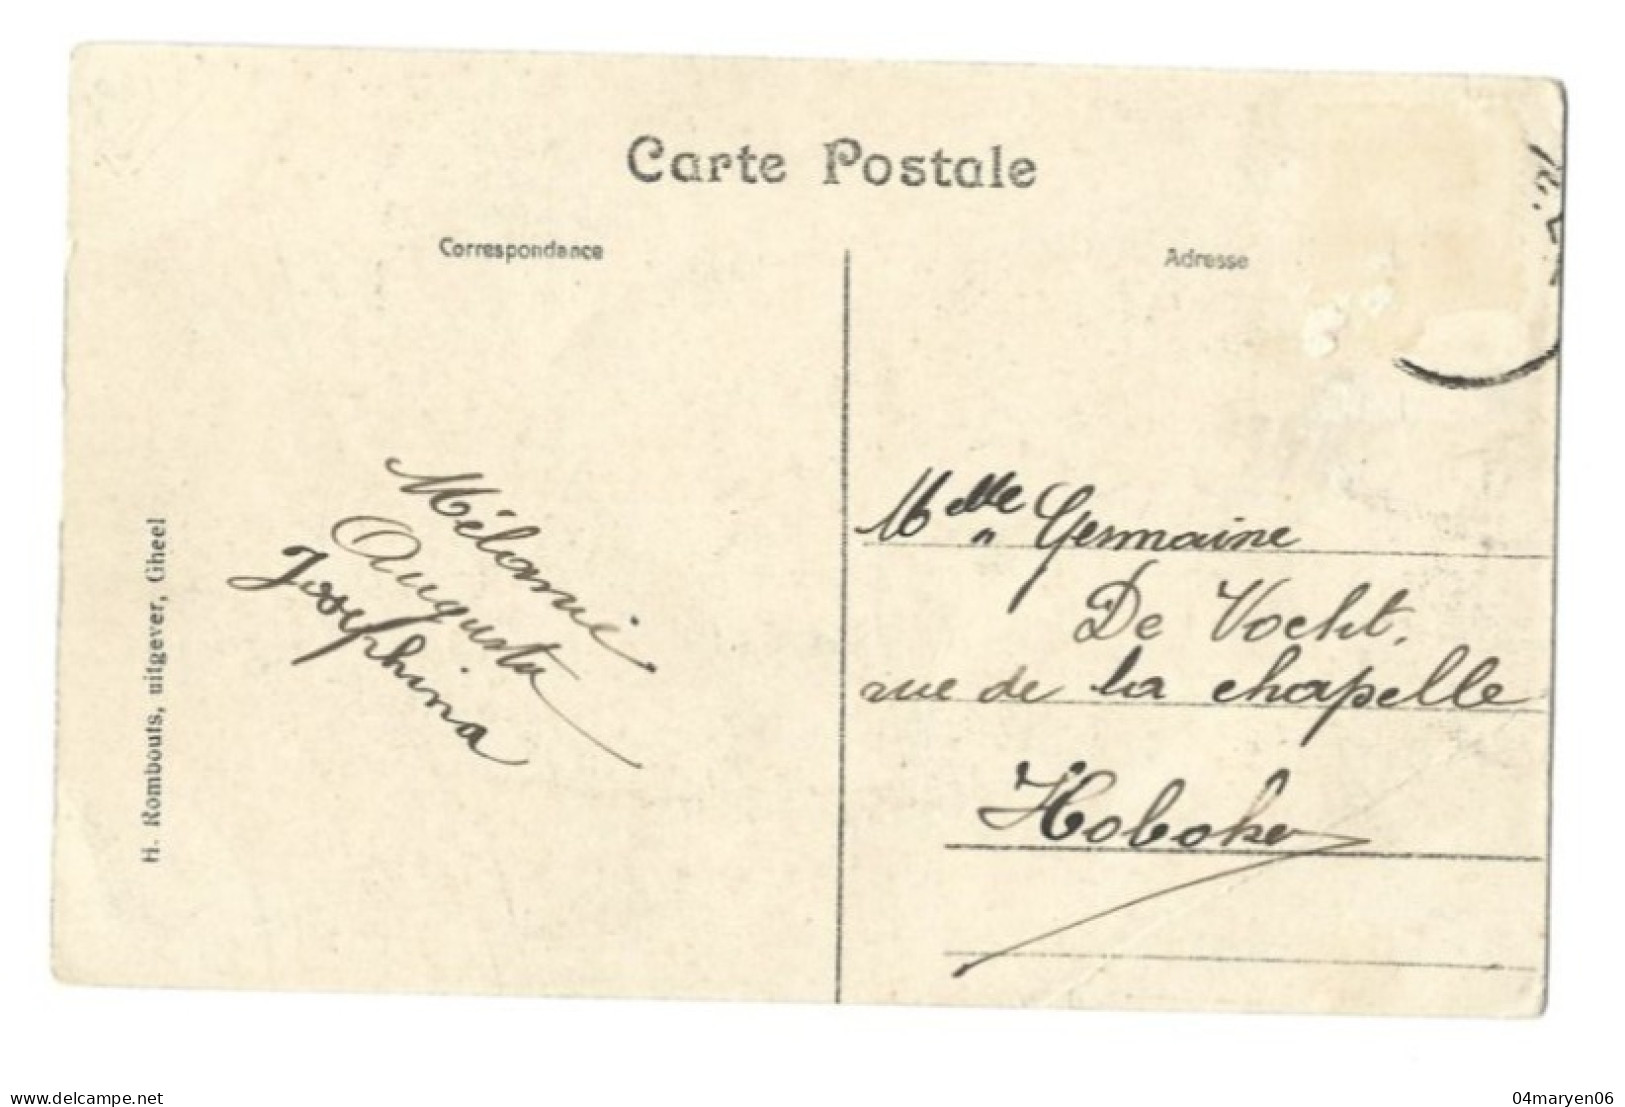 Carte Postale
Correspondance
Adresse
Mélanie
Augusta
Josephina
Melle " Germaine
De Vocht.
rue de la chapelle
Hoboken
H. Rombouts, uitgever, Gheel
www.delcampe.net
04maryen06